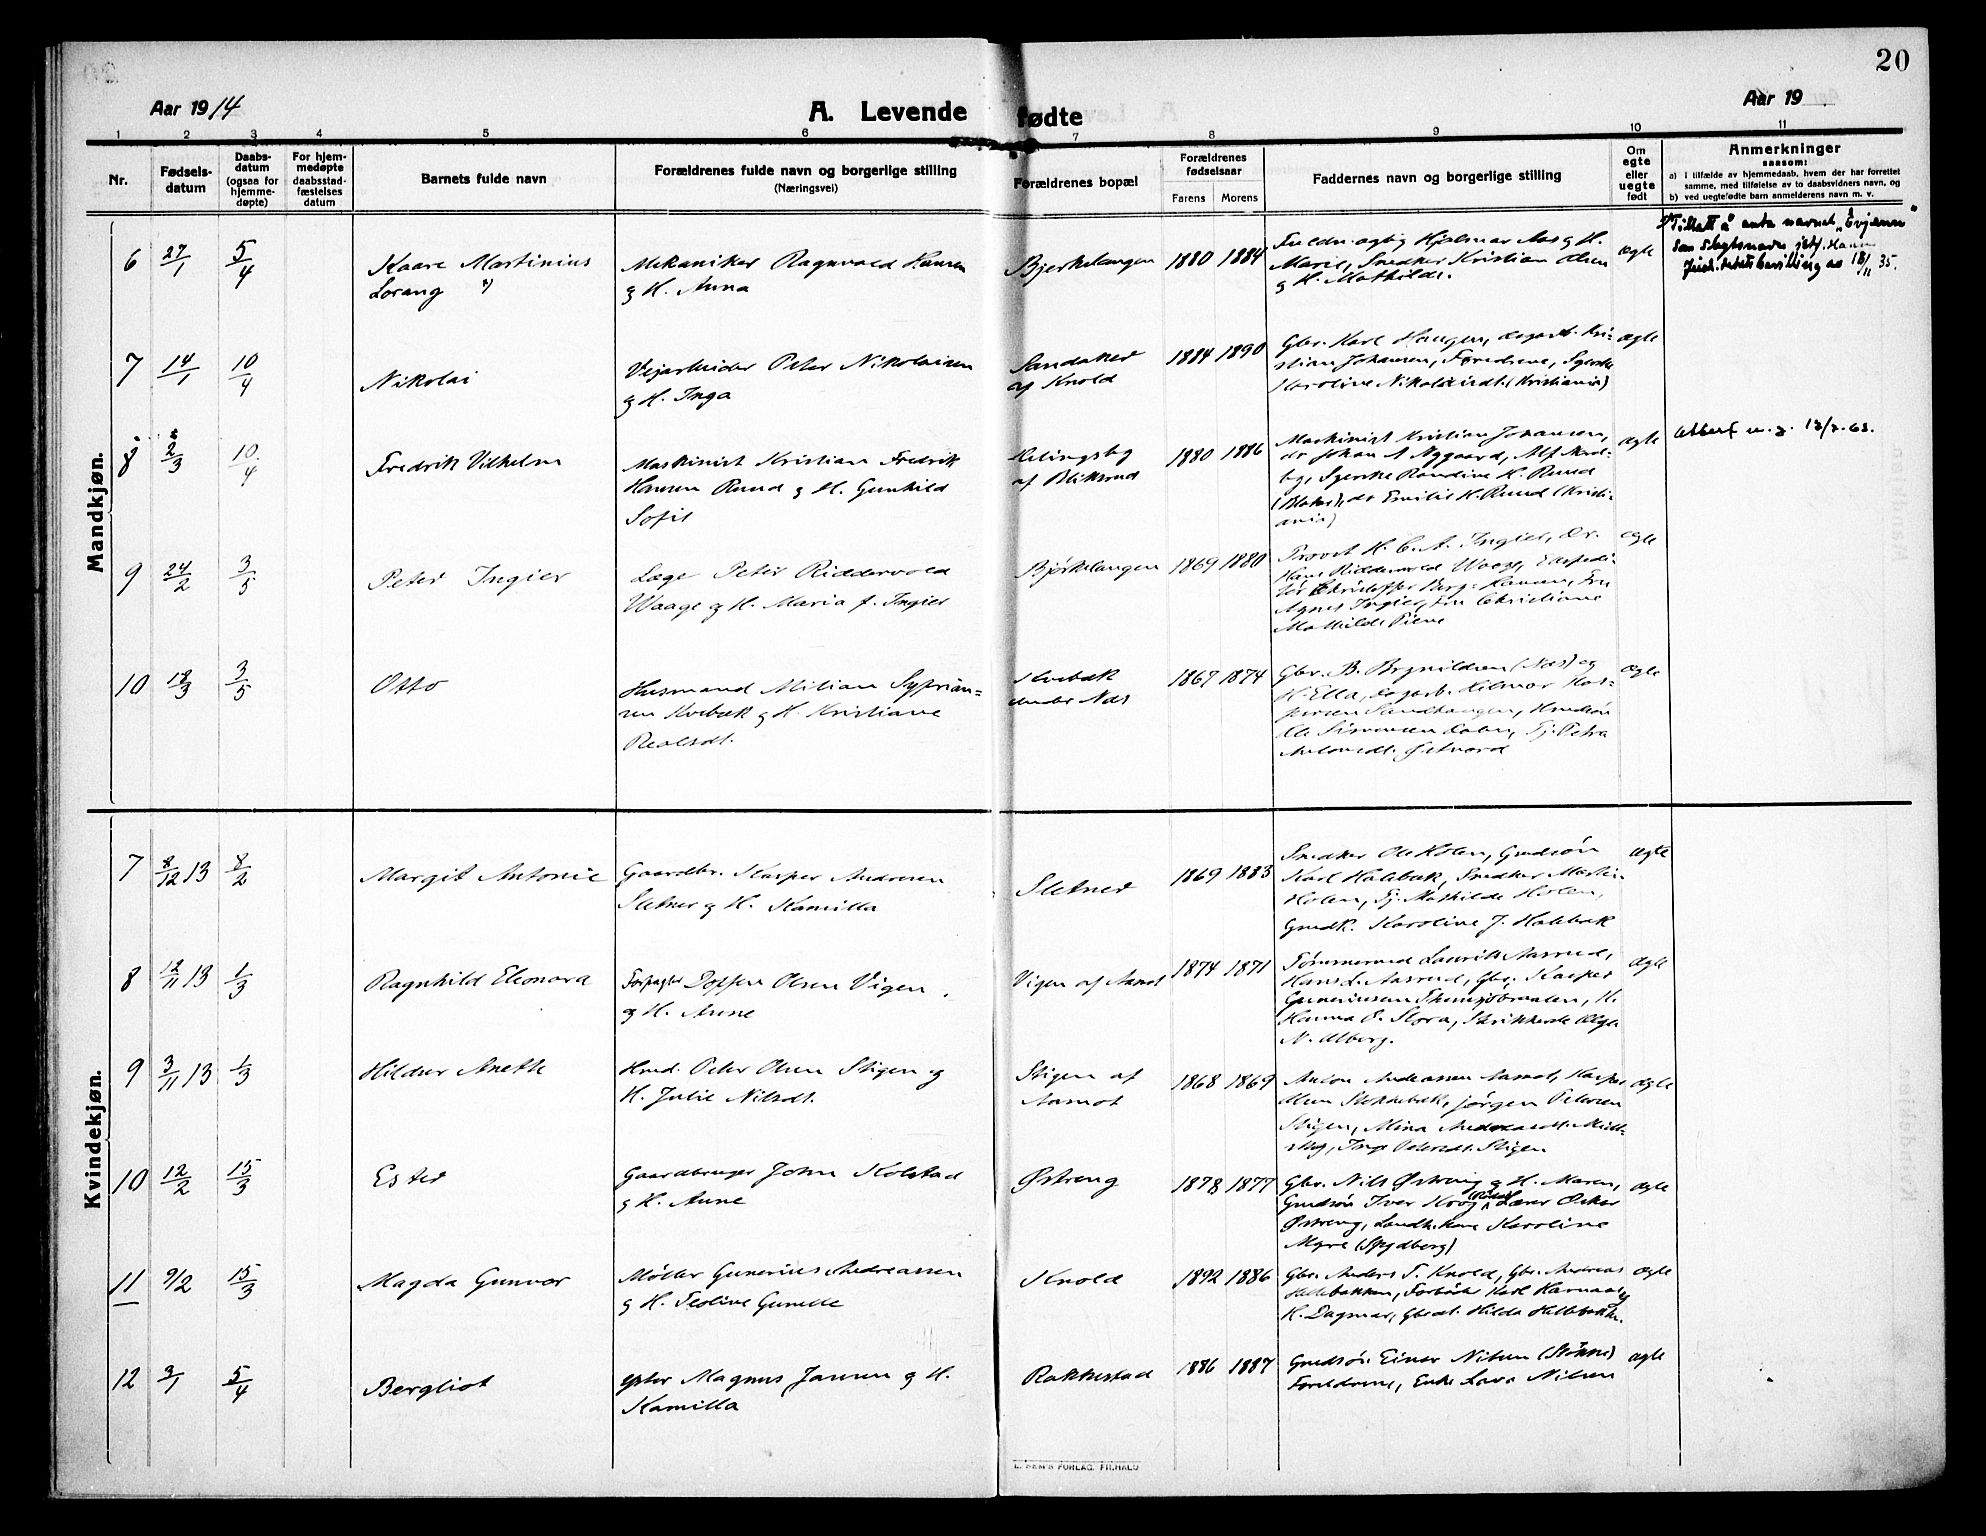 20
Aar 1914
A. Levende fødte
Aar 19
1 2 3 4 5 6 7 8 9 10 11
Nr.
Fødsels-
datum
Daabs-
datum
(ogsaa for
hjemme-
døpte)
For hjem-
medøpte
daabsstad-
fæstelses
datum
Barnets fulde navn
Forældrenes fulde navn og borgerlige stilling
(Næringsvei)
Forældrenes bopæl
Forældrenes
fødselsaar
Farens Morens
Faddernes navn og borgerlige stilling
Om
egte
eller
uegte
født
Anmerkninger
saasom:
a) i tilfælde av hjemmedaab, hvem der har forrettet
samme, med tilføielse av to daabsvidners navn, og
b) ved uegtefødte barn anmelderens navn m. v.
Mandkjøn.
6 27/1 5/4
Kaare Martinius
Lorang
Mekaniker Ragnvald Hansen
og H. Anna
Bjerkelangen
1880 1884
Hjalmar Aas og H.
Marie, Snedker Kristian Olsen
og H. Mathilde.
ægte
Tillatt å anta navnet "Evjenn"
som slegtsnavn
18/11 35.
7 14/1 10/4
Nikolai
Veiarbeider Peter Nikolaisen
og H. Inga
Sandaker
af Knold
1884 1890
Gbr. Karl Haugen, Kri-
stian Johansen, Forældrene, Syerske
Karoline Nikolaisdt. (Kristiania)
ægte
8 2/3 10/4
Fredrik Vilhelm
Maskinist Kristian Fredrik
Hansen Ruud og H. Gunhild
Sofie
af Bliksrud
1880 1886
Maskinist Kristian Johansen,
do Johan A Nygaard, Alf
Syerske Randine H. Ruud
(Blaker), do Emilie H. Ruud (Kristi-
ania)
ægte
9 24/2 3/5
Peter Ingier
Læge Peter Riddervold
Waage og H. Maria f. Ingier
Bjørkelangen
1869 1880
Provst H. C. A. Ingier, Dr.
Hans Riddervold Waage, Ekspedi-
tør Christoffer Borg-Hansen, Fru
Agnes Ingier, Fru Christiane
Mathilde
ægte
10 18/3 3/5
Otto
Husmand Milian Syprian-
sen Kvebæk og H. Kristiane
Realsdt.
Kvebæk
under Næs
1867 1874
Gbr. B. Brynildsen (Næs) og
H. Ella, Hilmar Kas-
persen Sandhaugen,
Ole Simensen Pj. Petra
ægte
Kvindekjøn.
7 8/12 13 8/2
Margit Antonie
Gaardbr. Kasper Andresen
Sletner og H. Kamilla
Sletner
1869 1883
Snedker Ole Holen, Gmdsøn
Karl Holebæk, Snedker Martin
Holen, Pj. Mathilde Holen,
Gmdk. Karoline J. Holebæk
ægte
8 12/11 13 1/3
Ragnhild Eleonora
Forpagter Olsen Vigen
og H. Anne
Vigen af Aamot
1874 1871
Tømmermand Laurits Aasrud,
Hans L. Aasrud, Gbr. Kasper
Guneriusen H.
Hanna O. Strikkerske Olga
N. Ulberg.
ægte
9 3/11 13 1/3
Hildur Anette
Hmd. Peter Olsen Stigen og
H. Julie Nilsdt.
Stigen af
Aamot
1868 1869
Anton Andreassen Aamot, Kasper
Olsen Stokkebæk, Jørgen Petersen
Stigen, Mina
Inga Petersdt. Stigen
ægte
10 12/2 15/3
Ester
Gaardbruger John Kolstad
og H. Anne
Østreng
1878 1877
Gbr. Nils Østreng og H. Maren,
Gmdsøn Iver Krog Lærer Oskar
Østreng, Karoline
Myre (Spydberg)
ægte
11 9/2 15/3
Magda Gunvor
Møller Gunerius Andreassen
og H. Teoline Gunelle
Knold
1892 1886
Gbr. Anders T. Knold, Gbr. Andreas
Hellebækken, Karl Harnaas og
H. Dagmar, Gbrdt. Hilda Hellebækken
ægte
12 3/1 5/4
Bergliot
Magnus Jansen og H.
Kamilla
Rakkestad
1886 1887
Gmdsøn Einar Nilsen (Stokke)
Forældrene, Enke Lava Nilsen
ægte
E. SEM'S FORLAG, FR.HALD